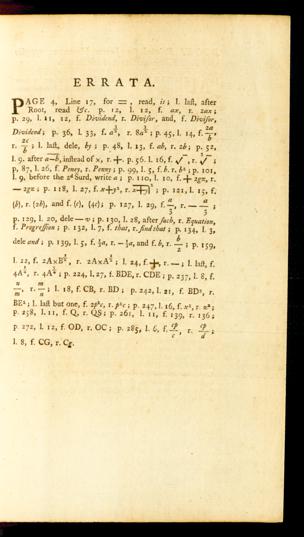 ERRATA.
PAGE 4, Line 17, for =, read, is; l. last, after
Root, read &c. p. 12, l. 12, f. ax, r. 2ax;
p. 29, l. 11, 12, f. Dividend, r. Divisor, and, f. Divisor,
Dividend; p. 36, l. 33, f. a, r. 8a; p. 45, l. 14, f. 2a/b,
r. 2c/b; l. last, dele, by; p. 48, l. 13, f. ab, r. 2b; p. 52,
l. 9. after a—b, instead of ×, r. +. p. 56. l. 16, f. √, r. √;
p, 87, l. 26, f. Peney, r. Penny; p. 99, l. 5, f. b. r. b²; p. 101,
l. 9, before the 2d Surd, write a; p. 110, l. 10, f. + 2gn, r.
— 2gn; p. 118, l. 27, f. x+y², r. x+y²; p. 121, l. 15, f.
(b), r. (2b), and f. (c), (4c); p. 127, l. 29, f. a/3, r. — a/3;
p. 129, l. 20, dele — v; p. 130, l. 28, after such, r. Equation,
f. Progression; p. 132, l. 7, f. that, r. find that; p. 134, l. 3,
dele and; p. 139, l. 5, f. ½a, r. — ½a, and f. b, r. b/2; p. 159,
l. 22, f. 2A×B, r. 2A×A; l. 24, f. +, r. —; l. last, f.
4A, r. 4A; p. 224, l. 27, f. BDE, r. CDE; p. 237, l. 8, f.
n/m, r. m/n; l. 18, f. CB, r. BD; p. 242, l. 21, f. BD², r.
BE²; l. last but one, f. 2p²c, r. p²c; p. 247, l. 16, f. x², r. n²;
p. 258, l. 11, f. Q, r. QS; p. 261, l. 11, f. 139, r. 136;
p. 272, l. 12, f. OD, r. OC; p. 285, l. 6, f. cp/c, r. cp/d;
l. 8, f. CG, r. Cg.